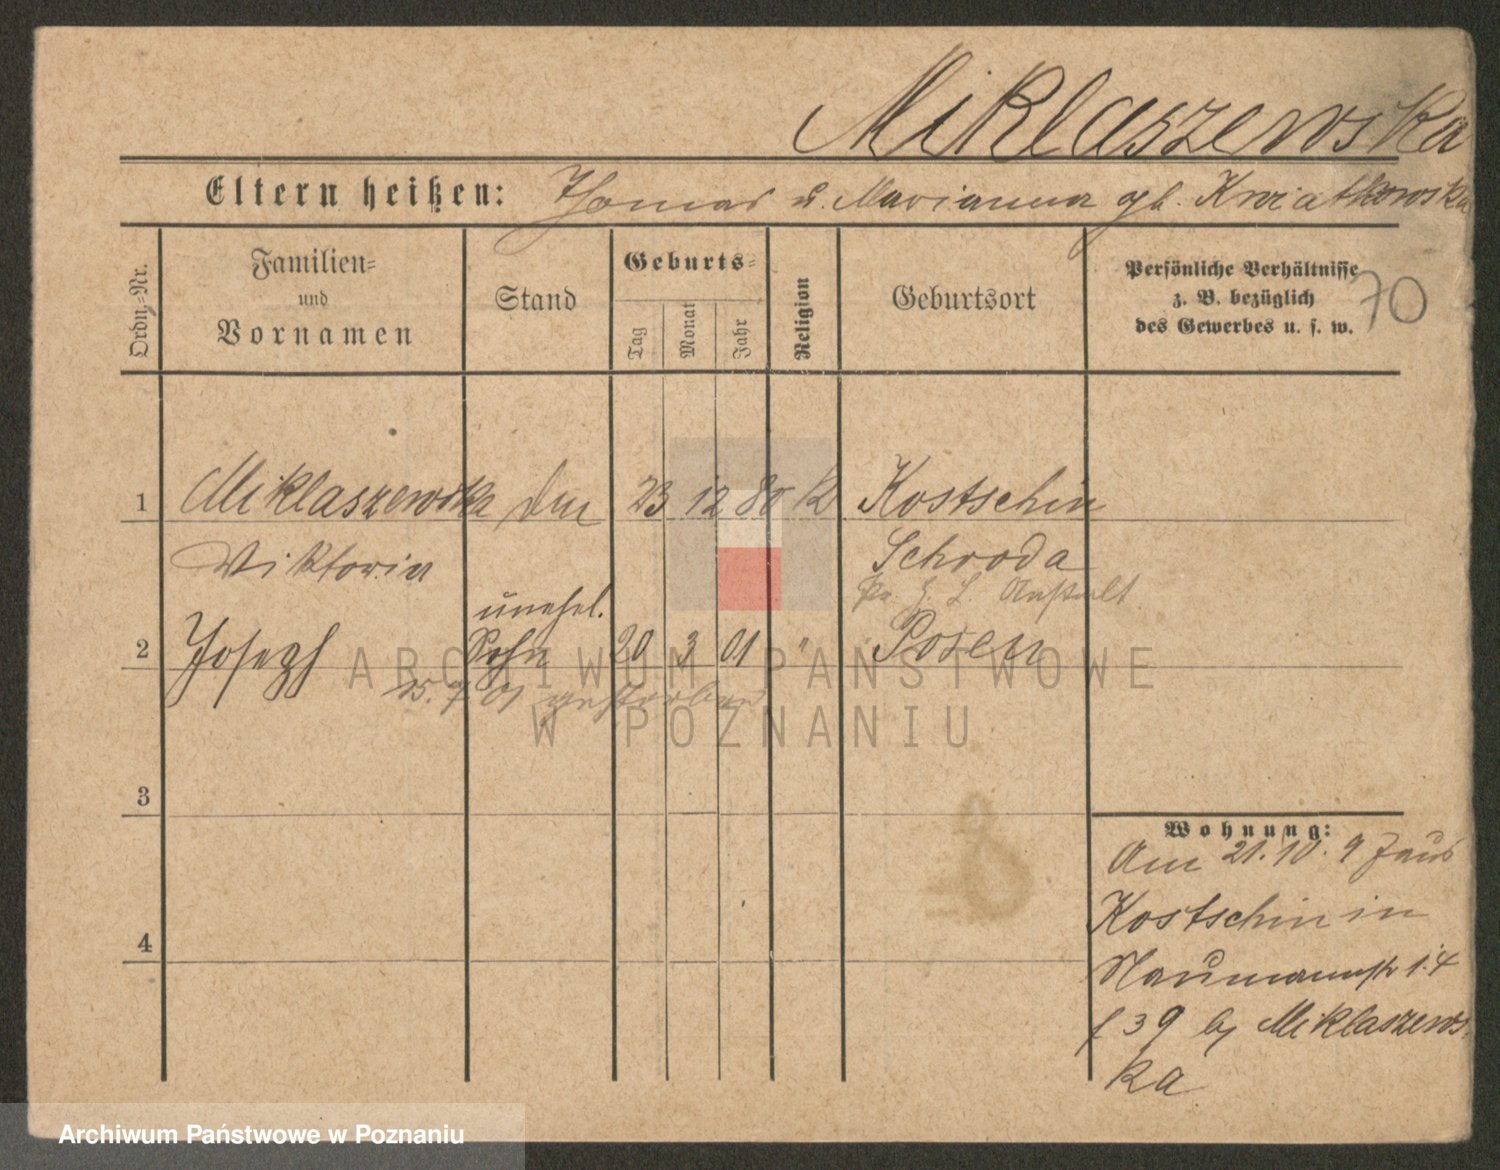 Miklaszewska
Eltern heißen: Thomas u. Marianna gb. Kwiatkowska
Ordn.-Nr.
Familien-
und
Vornamen
Stand
Geburts-
Tag
Monat
Jahr
Religion
Geburtsort
Persönliche Verhältnisse
z. B. bezüglich
des Gewerbes u. s. w.
70
1 Miklaszewska 23 12 80 K Kostschin
Viktoria Schroda
unehel.
2 Joseph Sohn 20 3 01 " Posen
15.7.01 gestorben
ARCHIWUM PAŃSTWOWE
W POZNANIU
3
4
Wohnung:
Am 21.10.9
Kostschin in
Naumannstr 14
f 39 by Miklaszews-
ka
Archiwum Państwowe w Poznaniu